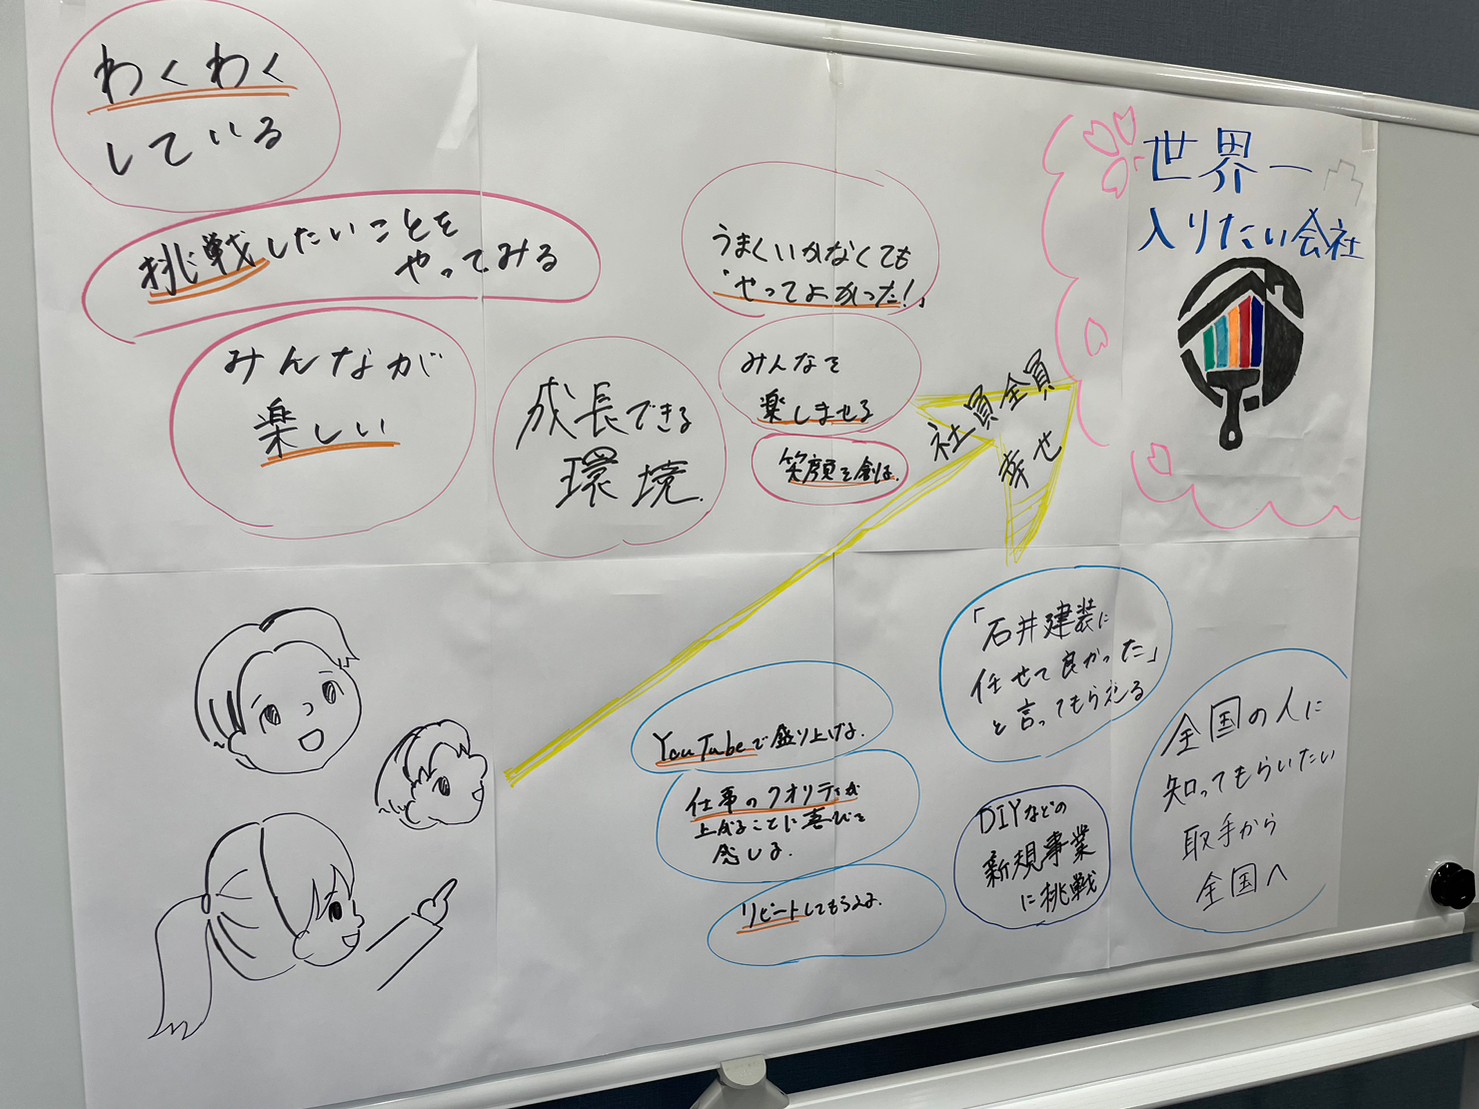 わくわく
している
挑戦したいことを
やってみる
みんなが
楽しい
成長できる
環境.
うまくいかなくても
「やってよかった!」
みんなを
楽しませる
笑顔を創る.
社員全員
幸せ
世界一
入りたい会社
「石井建装に
任せて良かった」
と言ってもらえる
YouTubeで盛り上げる.
仕事のクオリティが
上がることに喜びを
感じる.
リピートしてもらえる.
DIYなどの
新規事業
に挑戦
全国の人に
知ってもらいたい
取手から
全国へ